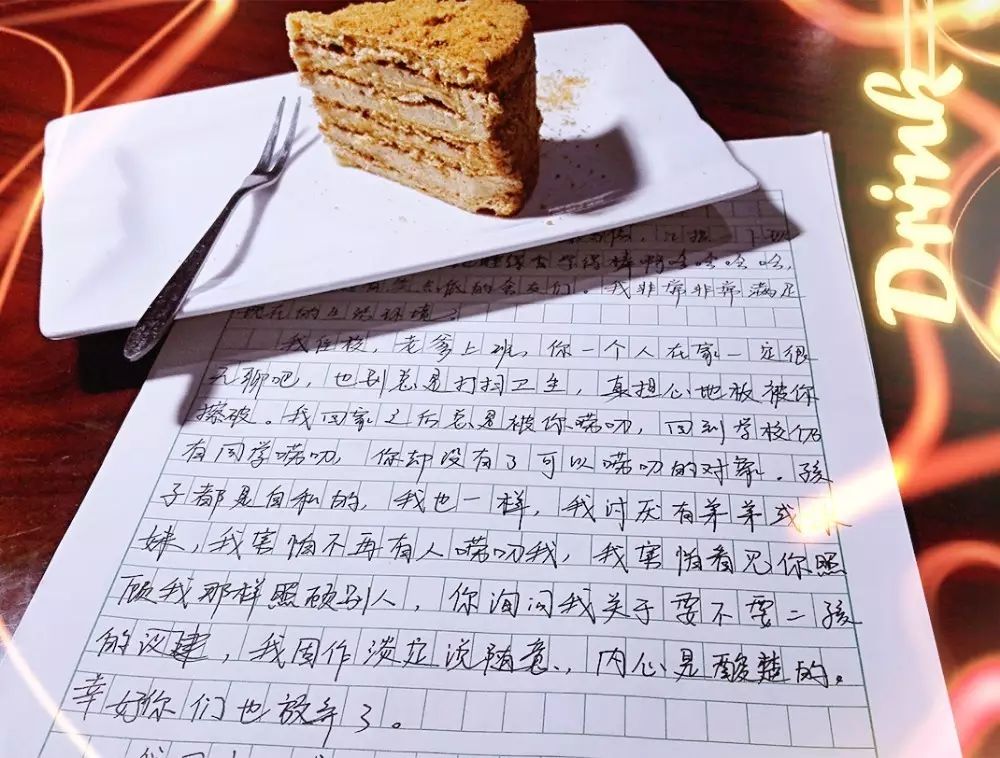 Drink
哈哈哈哈,
我非常非常满足
我住校，老爹上班，你一个人在家一定很
无聊吧，也别总是打扫卫生，真担心地板被你
擦破。我回家之后总是被你唠叨，回到学校仍
有同学唠叨，你却没有了可以唠叨的对象。孩
子都是自私的，我也一样，我讨厌有弟弟或
妹，我害怕不再有人唠叨我，我害怕看见你照
顾我那样照顾别人，你询问我关于要不要二孩
的议建，我固作淡定淡随意、内心是酸楚的。
幸好你们也放弃了。